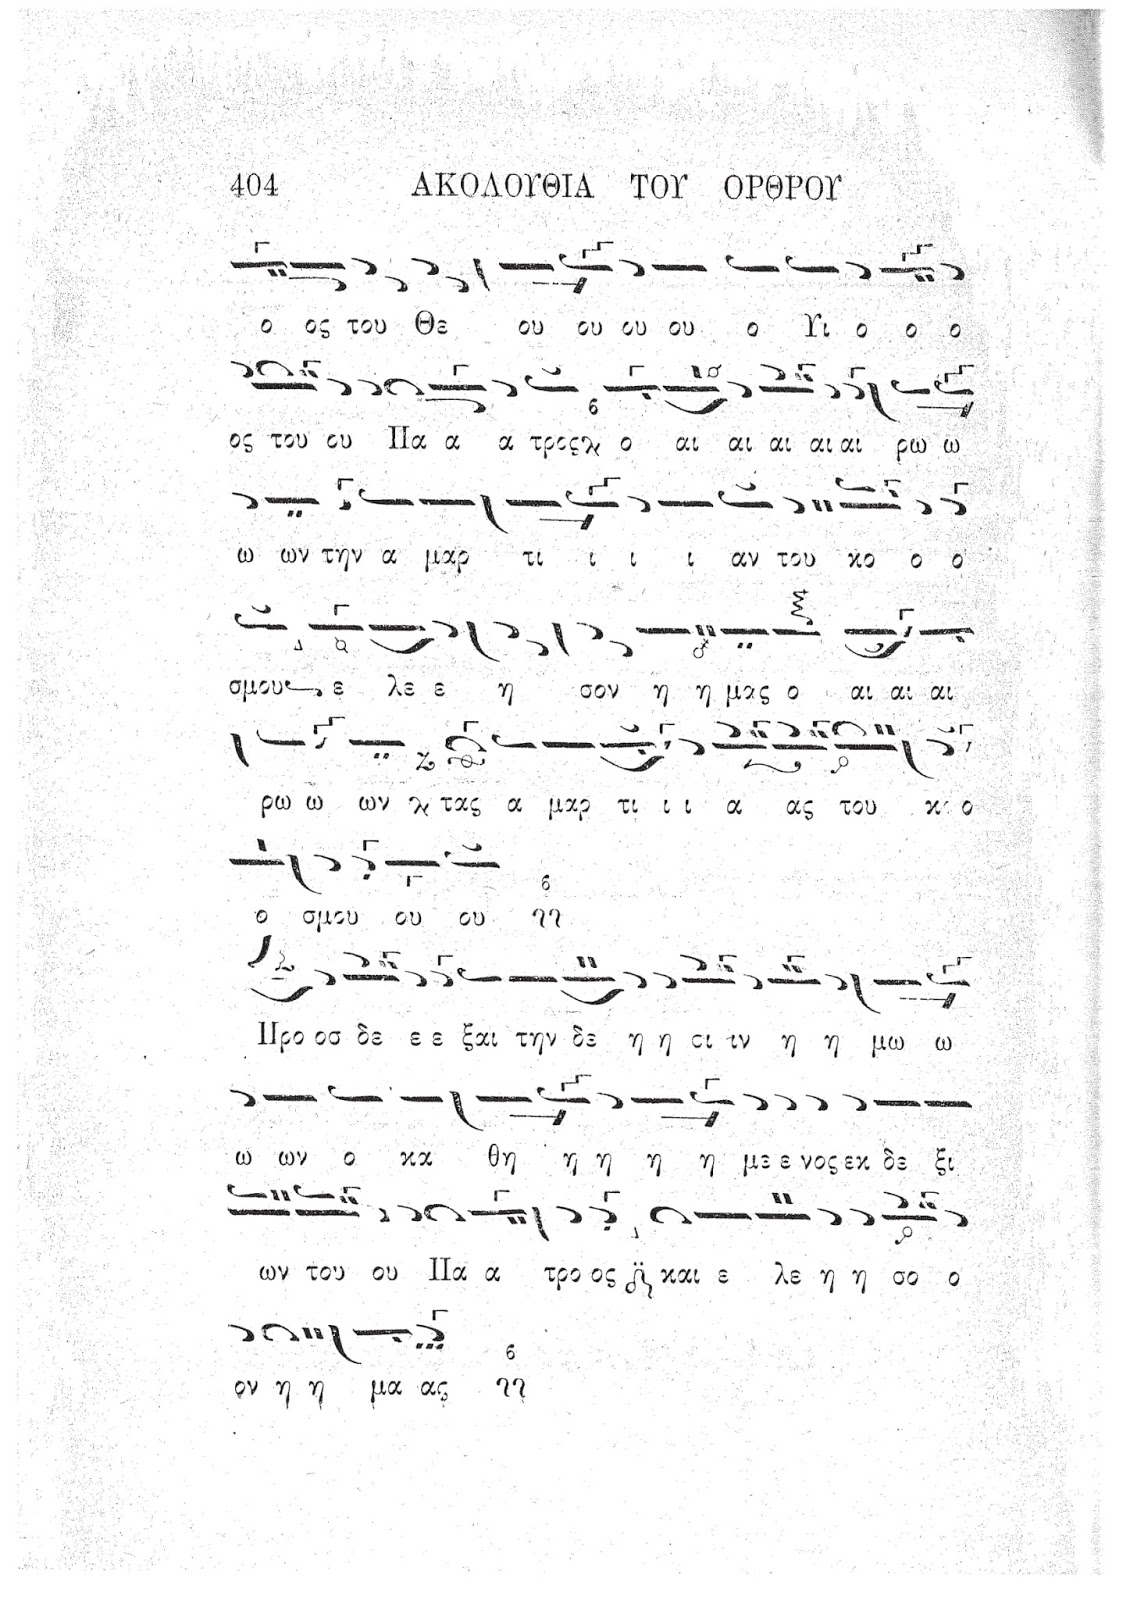 404 ΑΚΟΛΟΥΘΙΑ ΤΟΥ ΟΡΘΡΟΥ
ο ος του Θε ου ου ου ου ο Υι ο ο ο
ος του ου Πα α α τρος ο αι αι αι αι αι ρω ω
ω ων την α μαρ τι ι ι ι αν του κο ο ο
σμου ε λε ε η σον η η μας ο αι αι αι
ρω ω ων τας α μαρ τι ι ι α ας του κ ο
ο σμου ου ου
Προ οσ δε ε ε ξαι την δε η η σι ιν η η μω ω
ω ων ο κα θη η η η η με ε νος εκ δε ξι
ων του ου Πα α τρο ος και ε λε η η σο ο
ον η η μα ας